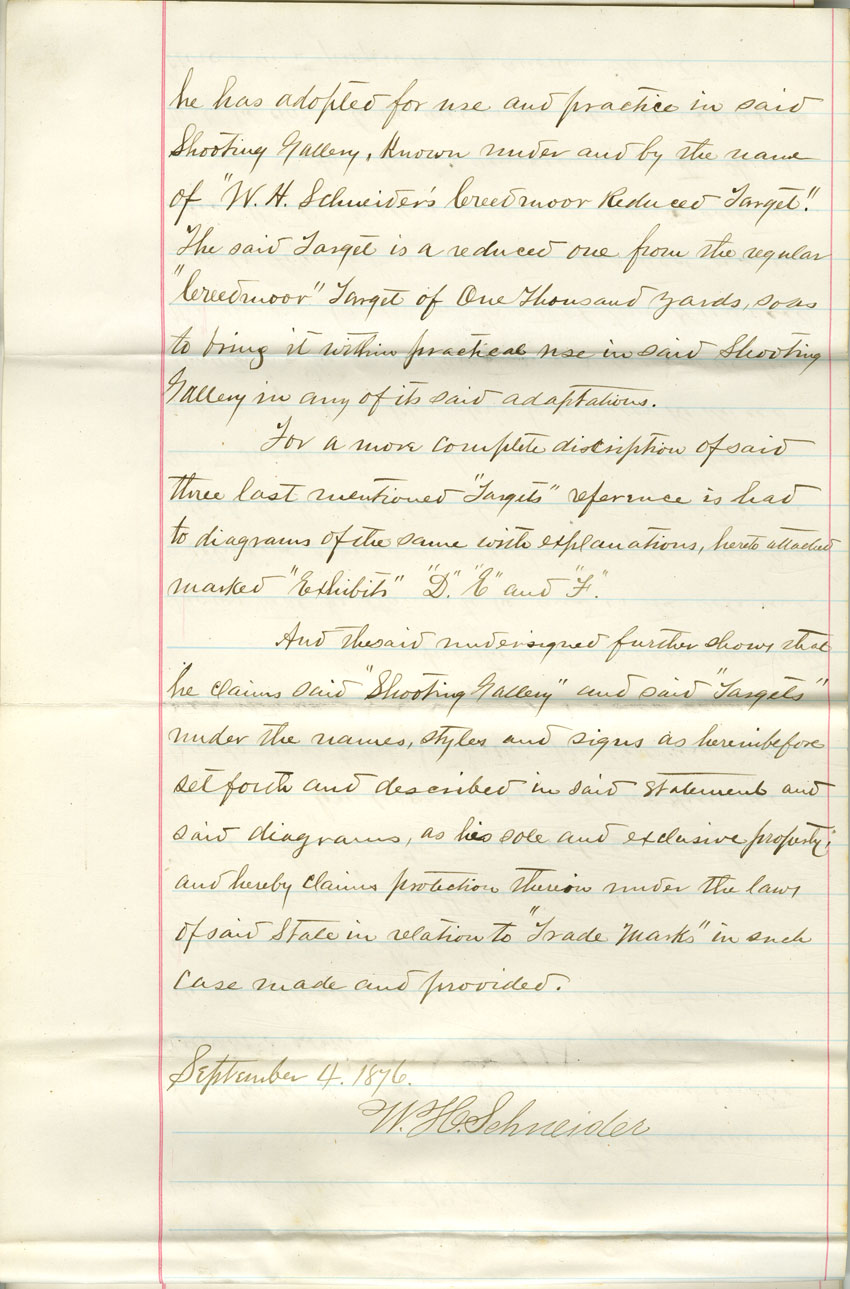 he has adopted for use and practice in said
Shooting Gallery, Known under and by the name
of "W. H. Schneider's Creedmoor Reduced Target."
The said Target is a reduced one from the regular
"Creedmoor" Target of One Thousand yards, so as
to bring it within practical use in said Shooting
Gallery in any of its said adaptations.
For a more complete discription of said
three last mentioned "Targets" reference is had
to diagrams of the same with explanations, hereto attached
marked "Exhibits" "D." "E" and "F."
And the said undersigned further shows that
he claims said "Shooting Gallery" and said "Targets"
under the names, styles and signs as hereinbefore
set forth and described in said Statement and
said diagrams, as his sole and exclusive property;
and hereby claims protection therein under the laws
of said State in relation to "Trade Marks" in such
case made and provided.
September 4. 1876.
W. H. Schneider